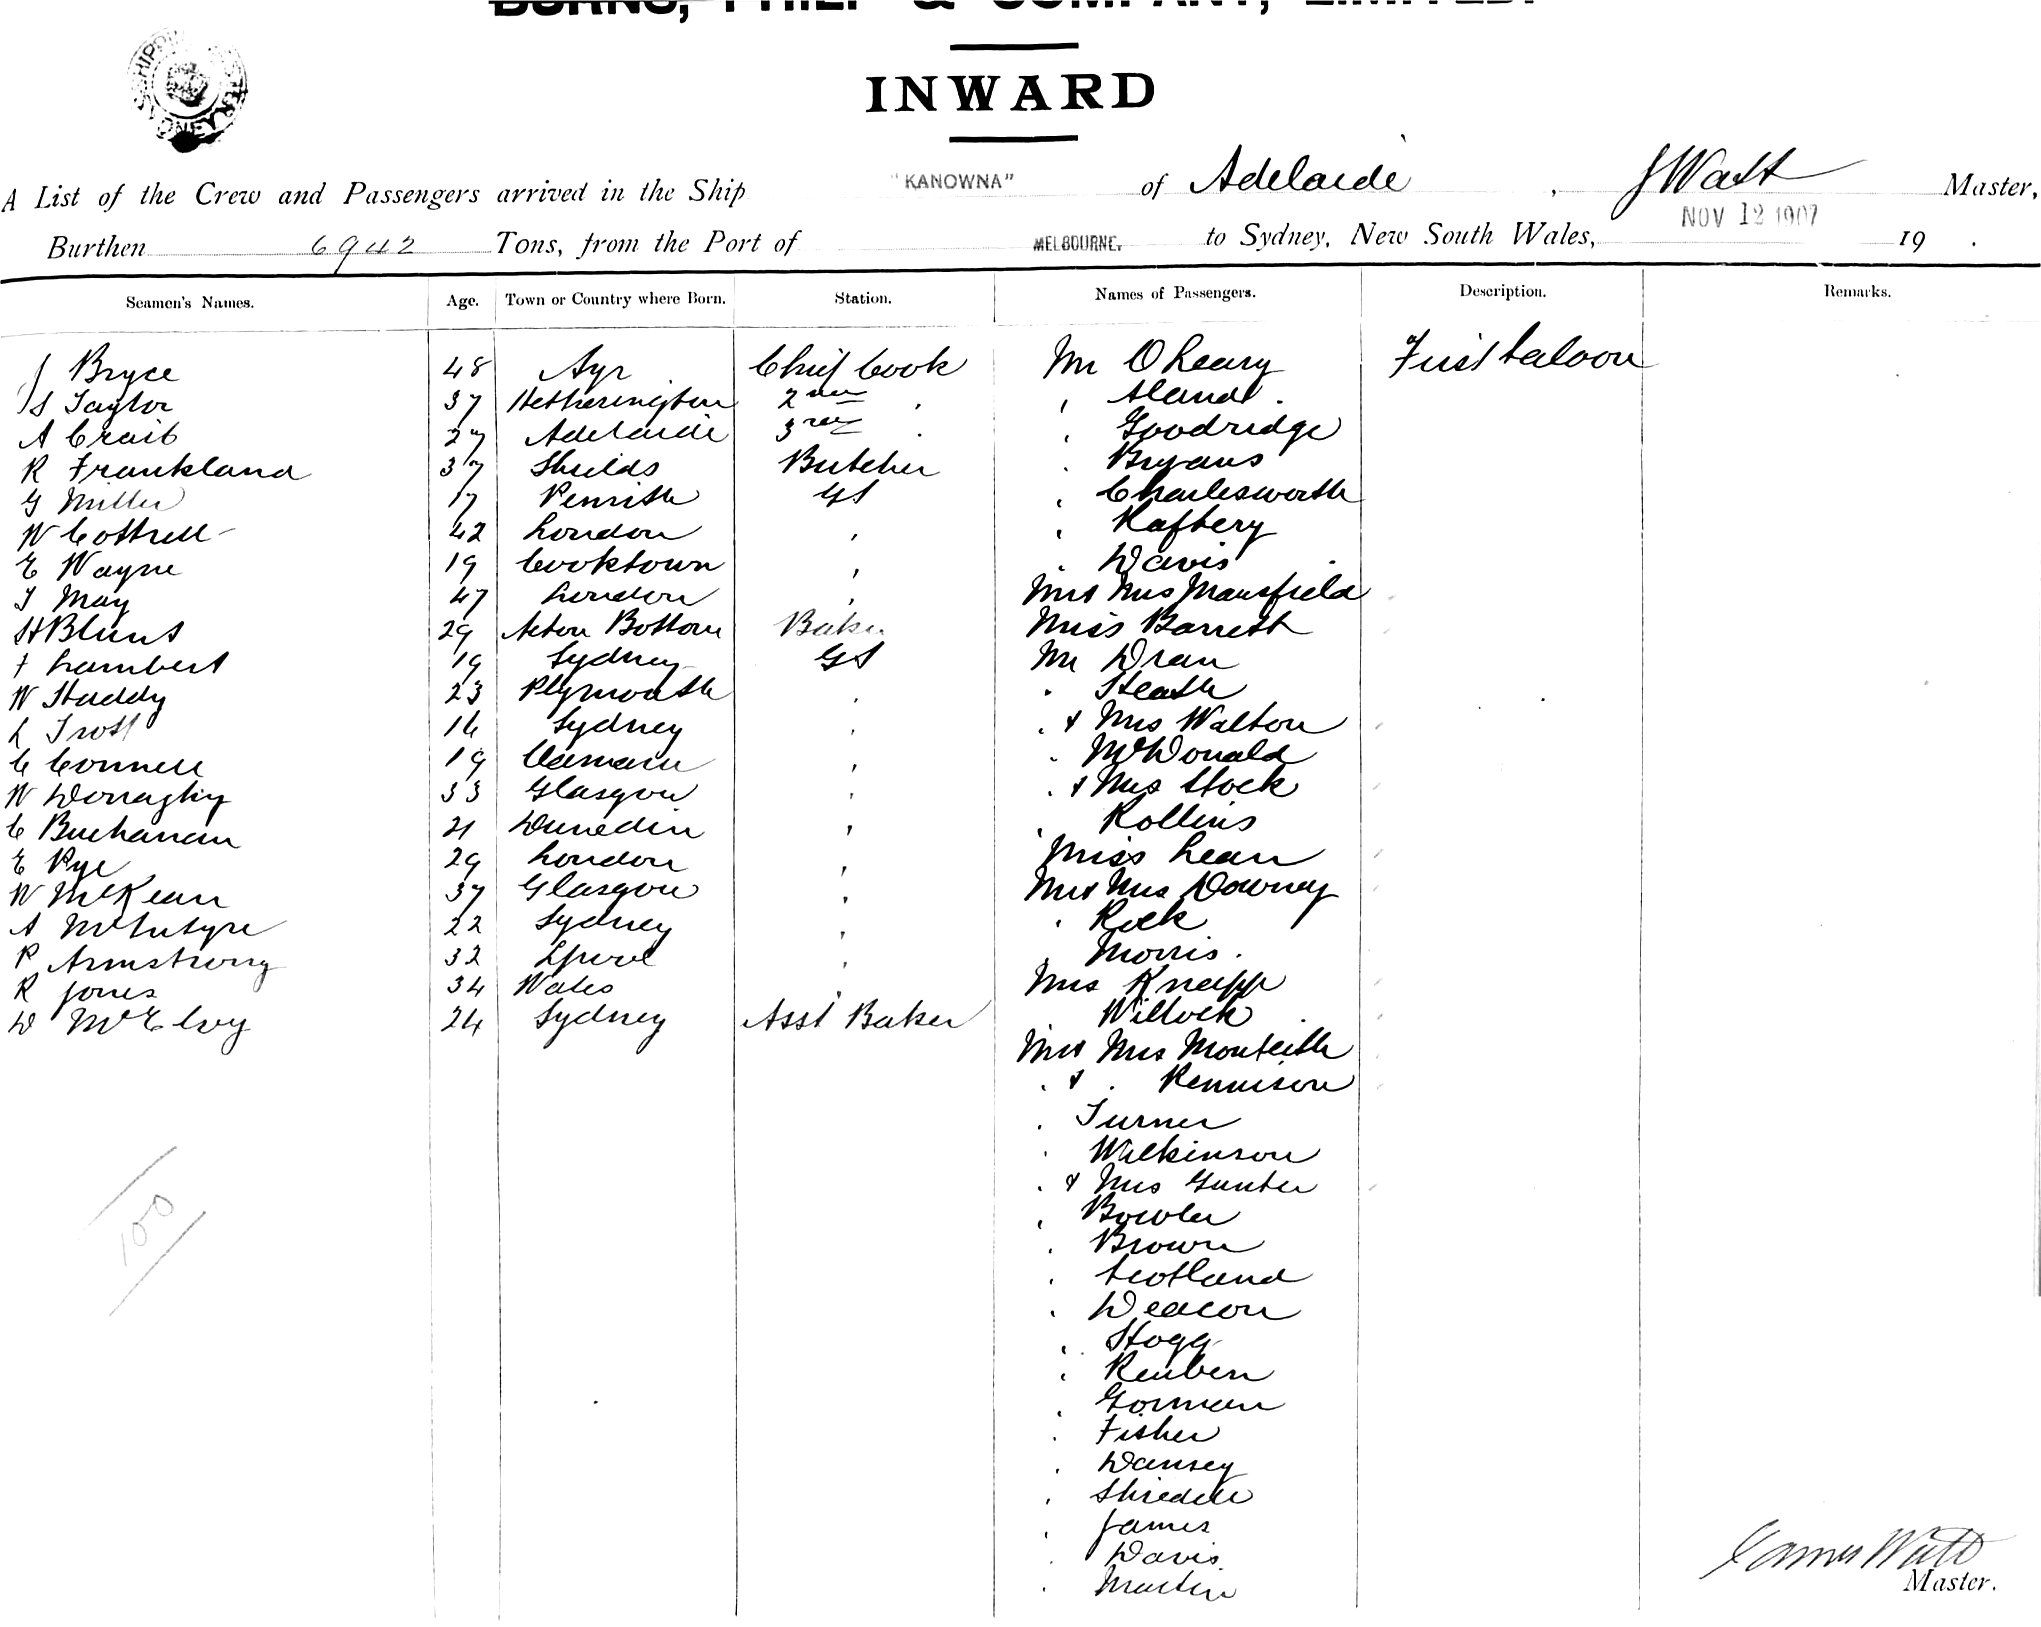 BURNS, PHILP & COMPANY, LIMITED.
INWARD
A List of the Crew and Passengers arrived in the Ship "KANOWNA" of Adelaide, J Watt Master,
Burthen 6942 Tons, from the Port of MELBOURNE. to Sydney, New South Wales, NOV 12 1907 19 .
Seamen's Names. Age. Town or Country where Born. Station. Names of Passengers. Description. Remarks.
J Bryce 48 Ayr Chief Cook Mr O Leary First Saloon
S Taylor 37 Hetherington 2nd " " Aland
A Craib 27 Adelaide 3rd " " Goodridge
R Frankland 37 Shields Butcher " Bryans
G Miller 17 Penrith GS " Charlesworth
W Cottrell 42 London " " Raftery
E Wayne 19 Cooktown " " Davis
T May 47 London " Mr & Mrs Mansfield
H Blunt 29 Acton Bottom Baker Miss Barrett
F Lambert 19 Sydney GS Mr Dran
W Huddy 23 Plymouth " " Heath
L Trott 16 Sydney " " & Mrs Walton
C Connell 19 " " McDonald
W Donaghy 33 Glasgow " " & Mrs Stock
C Buchanan 21 Dunedin " " Rollins
E Pye 29 London " Miss Lean
W McKean 37 Glasgow " Mr & Mrs Downey
A McIntyre 22 Sydney " " Rock
P Armstrong 32 Lpool " " Morris
R Jones 34 Wales " Mrs Knapp
D McElvoy 24 Sydney Asst Baker " Willock
Mr & Mrs Monteith
" & " Rennison
" Turner
" Wilkinson
" & Mrs Gunter
" Bowler
" Brown
" Scotland
" Deacon
" Hogg
" Reuben
" Gorman
" Fisher
" Dansey
"
" James
" Davis
" Martin
100
James Watt
Master.